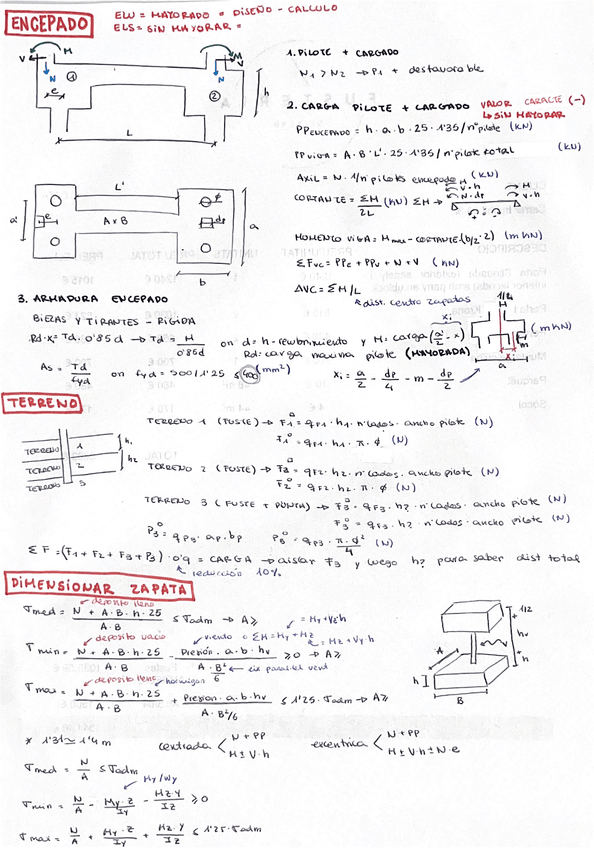 ENCEPADO
ELU = MAYORADO = DISEÑO - CALCULO
ELS = SIN MAYORAR =
V M
N
e
①
②
V M
N
h
L
1. PILOTE + CARGADO
N1 > N2 → P1 + desfavorable
2. CARGA PILOTE + CARGADO VALOR CARACTE (-)
↳ SIN MAYORAR
PPENCEPADO = h · a · b · 25 · 1'35 / nº pilote (KN)
PP VIGA = A · B · L' · 25 · 1'35 / nº pilote total (KN)
AXIL = N · 1/nº pilotes encepado (KN)
CORTANTE = ΣM / 2L (KN) ΣM → M V·h N·dp M V·h
MOMENTO VIGA = Mmax - CORTANTE · (b/2 · 2) (m KN)
ΣFVC = PPE + PPV + N + V (KN)
ΔVC = ΣM / L
* dist. centro zapatas
L'
a'
e
A x B
ϕ
dp
a
b
3. ARMADURA ENCEPADO
BIELAS Y TIRANTES - RÍGIDA
Rd · x = Td · 0'85 d → Td = M / 0'85d on d = h - recubrimiento y M = carga (a'/2 - x) (m KN)
Rd: carga maxima pilote (MAYORADA)
As = Td / fyd on fyd = 500/1'25 ≤ 400 (mm²)
xi = a/2 - dp/4 - m - dp/2
1/4
H
xi
m
a
TERRENO
TERRENO 1
TERRENO 2
TERRENO 3
h1
h2
TERRENO 1 (FUSTE) → F1□ = qF1 · h1 · nº lados · ancho pilote (N)
F1○ = qF1 · h1 · π · ϕ (N)
TERRENO 2 (FUSTE) → F2□ = qF2 · h2 · nº lados · ancho pilote (N)
F2○ = qF2 · h2 · π · ϕ (N)
TERRENO 3 (FUSTE + PUNTA) → F3□ = qF3 · h? · nº lados · ancho pilote (N)
F3○ = qF3 · h? · nº lados · ancho pilote (N)
P3□ = qP3 · ap · bp P3○ = qP3 · π · ϕ² / 4 (N)
ΣF = (F1 + F2 + F3 + P3) · 0'9 = CARGA → aislar F3 y luego h? para saber dist total
reducción 10%
DIMENSIONAR ZAPATA
deposito lleno
σmed = N + A · B · h · 25 / A · B ≤ σadm → A ≥
deposito vacio
viendo o ΣM = My + Mz
= My + Vz·h
= Mz + Vy·h
σmin = N + A · B · h · 25 / A · B - Presión · a · b · hv / A · B²/6 ≥ 0 → A ≥
eix paral·lel vent
deposito lleno
hormigon
σmax = N + A · B · h · 25 / A · B + Presion · a · b · hv / A · B²/6 ≤ 1'25 · σadm → A ≥
1/2
hv
h
V
A
h
B
* 1'31 ≃ 1'4 m
centrada < N + PP
M ± V·h
excentrica < N + PP
M ± V·h ± N·e
σmed = N/A ≤ σadm
My / Wy
σmin = N/A - My·Z / Iy - Mz·Y / Iz ≥ 0
σmax = N/A + My·Z / Iy + Mz·Y / Iz ≤ 1'25 · σadm